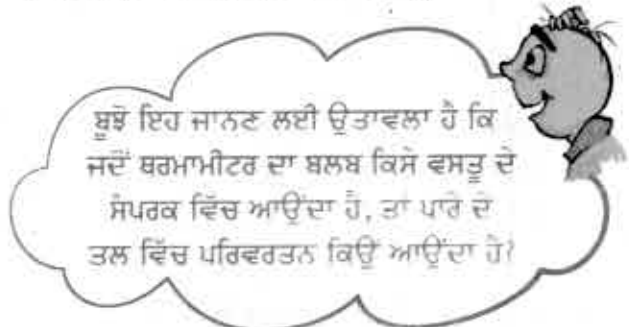 ਬੂਝੋ ਇਹ ਜਾਨਣ ਲਈ ਉਤਾਵਲਾ ਹੈ ਕਿ
ਜਦੋਂ ਥਰਮਾਮੀਟਰ ਦਾ ਬਲਬ ਕਿਸੇ ਵਸਤੂ ਦੇ
ਸੰਪਰਕ ਵਿੱਚ ਆਉਂਦਾ ਹੈ, ਤਾਂ ਪਾਰੇ ਦੇ
ਤਲ ਵਿੱਚ ਪਰਿਵਰਤਨ ਕਿਉਂ ਆਉਂਦਾ ਹੈ?